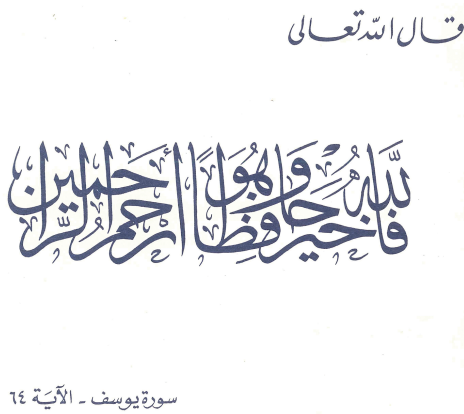 قال الله تعالى
فالله خير حافظا وهو أرحم الراحمين
سورة يوسف - الآية ٦٤